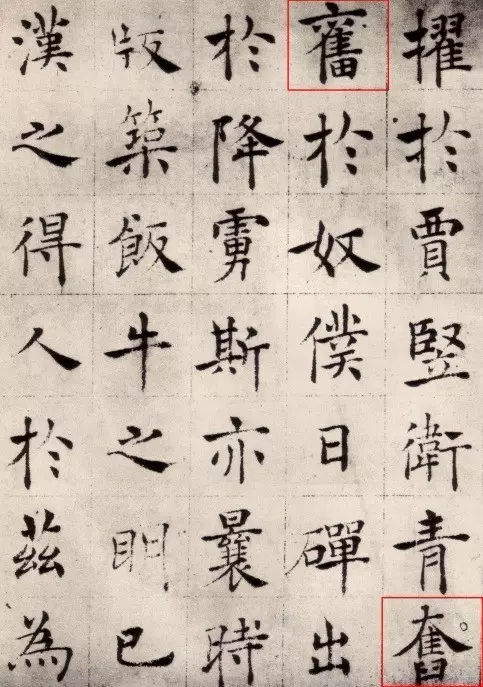 擢於賈竪衛青奮
奮於奴僕日磾出
於降虜斯亦曩時
版築飯牛之明已
漢之得人於茲為